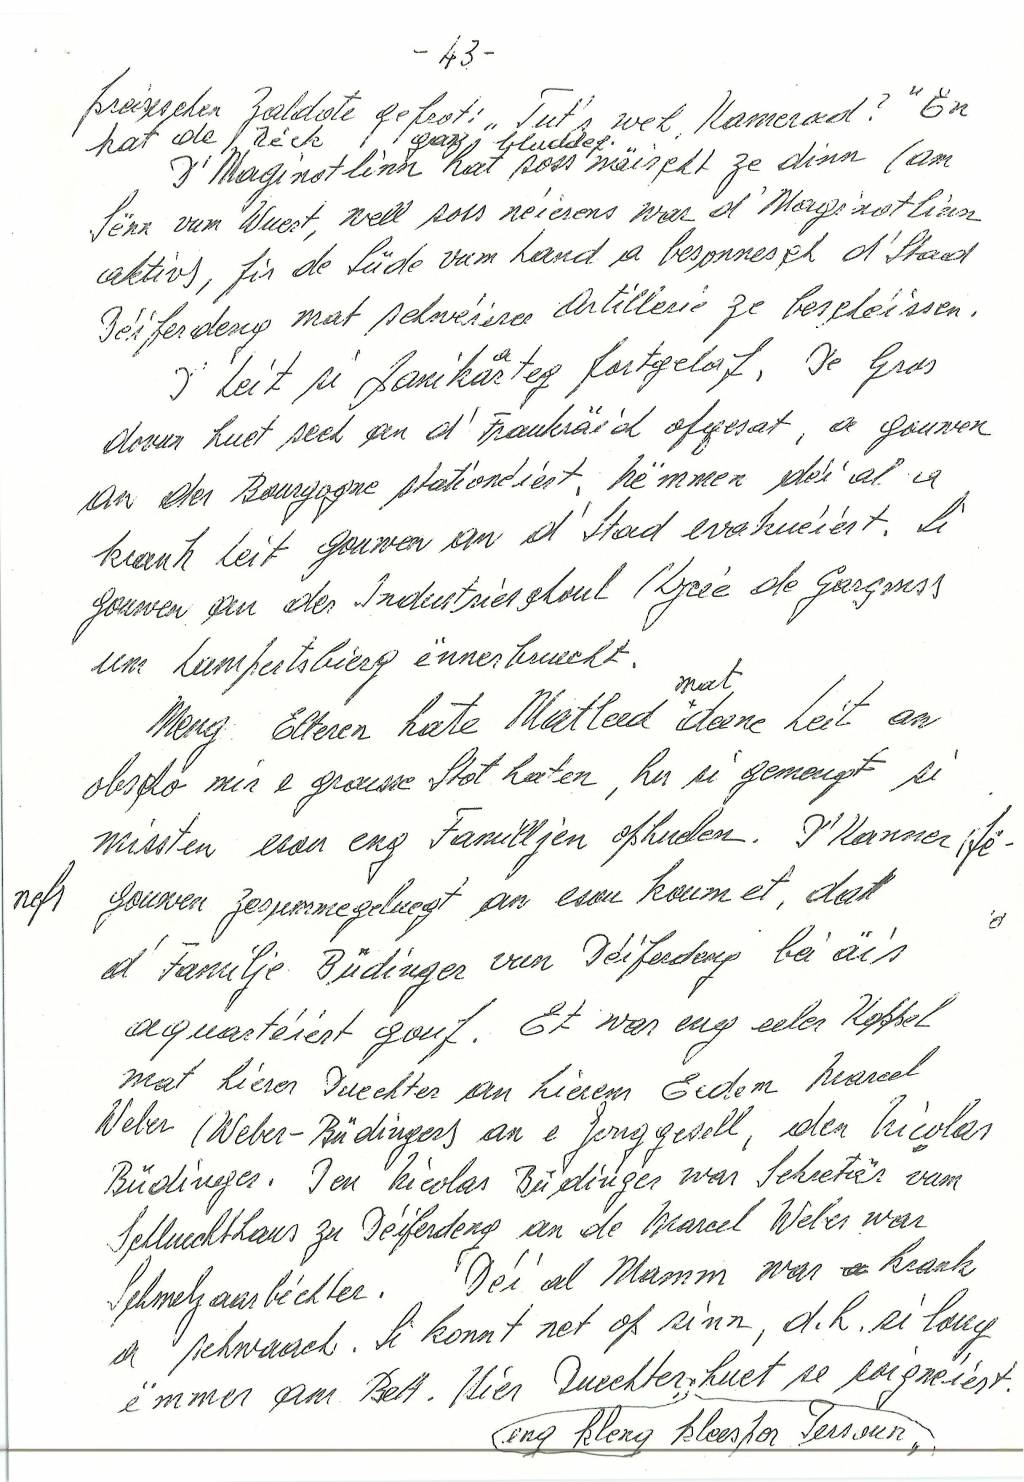 - 43 -
preiseschen Zaldote gefrot: „Tut's weh, Kamerad?" En
hat de Réck ganz bluddeg.
D'Maginotlinn hat soss näischt ze dinn (am
Sënn vum Wuert, well soss néierens war d'Maginotlinn
aktiv), fir de Süde vum Land a besonnesch d'Stad
Déiferdeng mat schwéierer Artillerie ze beschéissen.
D'Leit si panikarteg fortgelaf. De Gros
dovun huet sech an d'Frankräich ofgesat, a gouwen
an der Bourgogne stationéiert. Nëmmen déi al a
krank Leit gouwen an d'Stad evakuéiert. Si
gouwen an der Industrieschoul (Lycée de Garçons)
um Lampertsbierg ënnerbruecht.
Meng Elteren hate Matleed mat deene Leit an
obscho mir e grousse Stot haten, hu si gemengt si
missten esou eng Familljen ophuelen. D'Kanner
gouwen zesummegeluegt an esou koum et, dat
d'Familje Büdinger vun Déiferdeng bei äis
aquartéiert gouf. Et war eng eeler Koppel
mat hierer Duechter an hierem Eedem Marcel
Weber (Weber-Büdinger) an e Jonggesell, den Nicolas
Büdinger. Den Nicolas Büdinger war Sekretär vum
Schluechthaus zu Déiferdeng an de Marcel Weber war
Schmelzaarbechter. Déi al Mamm war krank
a schwaach. Si konnt net op sinn, d.h. si loug
ëmmer am Bett. Hier Duechter, huet se soignéiert.
eng kleng kloesper Persoun,